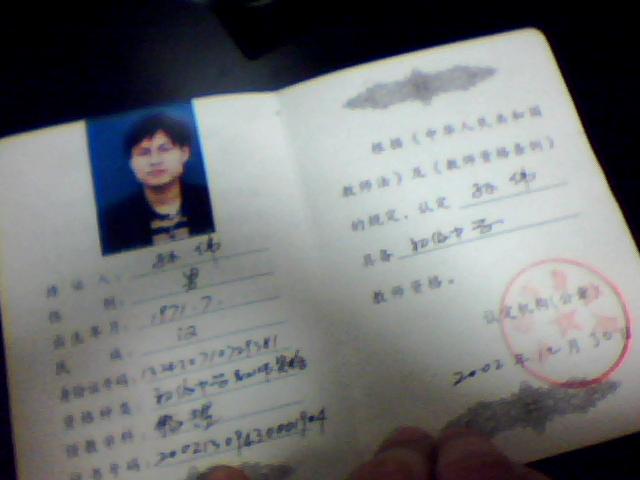 持证人：孙伟
性别：男
出生年月：1971.7.
民族：汉
身份证号码：
资格种类：初级中学教师资格
任教学科：物理
证书号码：
根据《中华人民共和国
教师法》及《教师资格条例》
的规定，认定 孙伟
具备 初级中学
教师资格。
认定机构（公章）
2002年12月30日